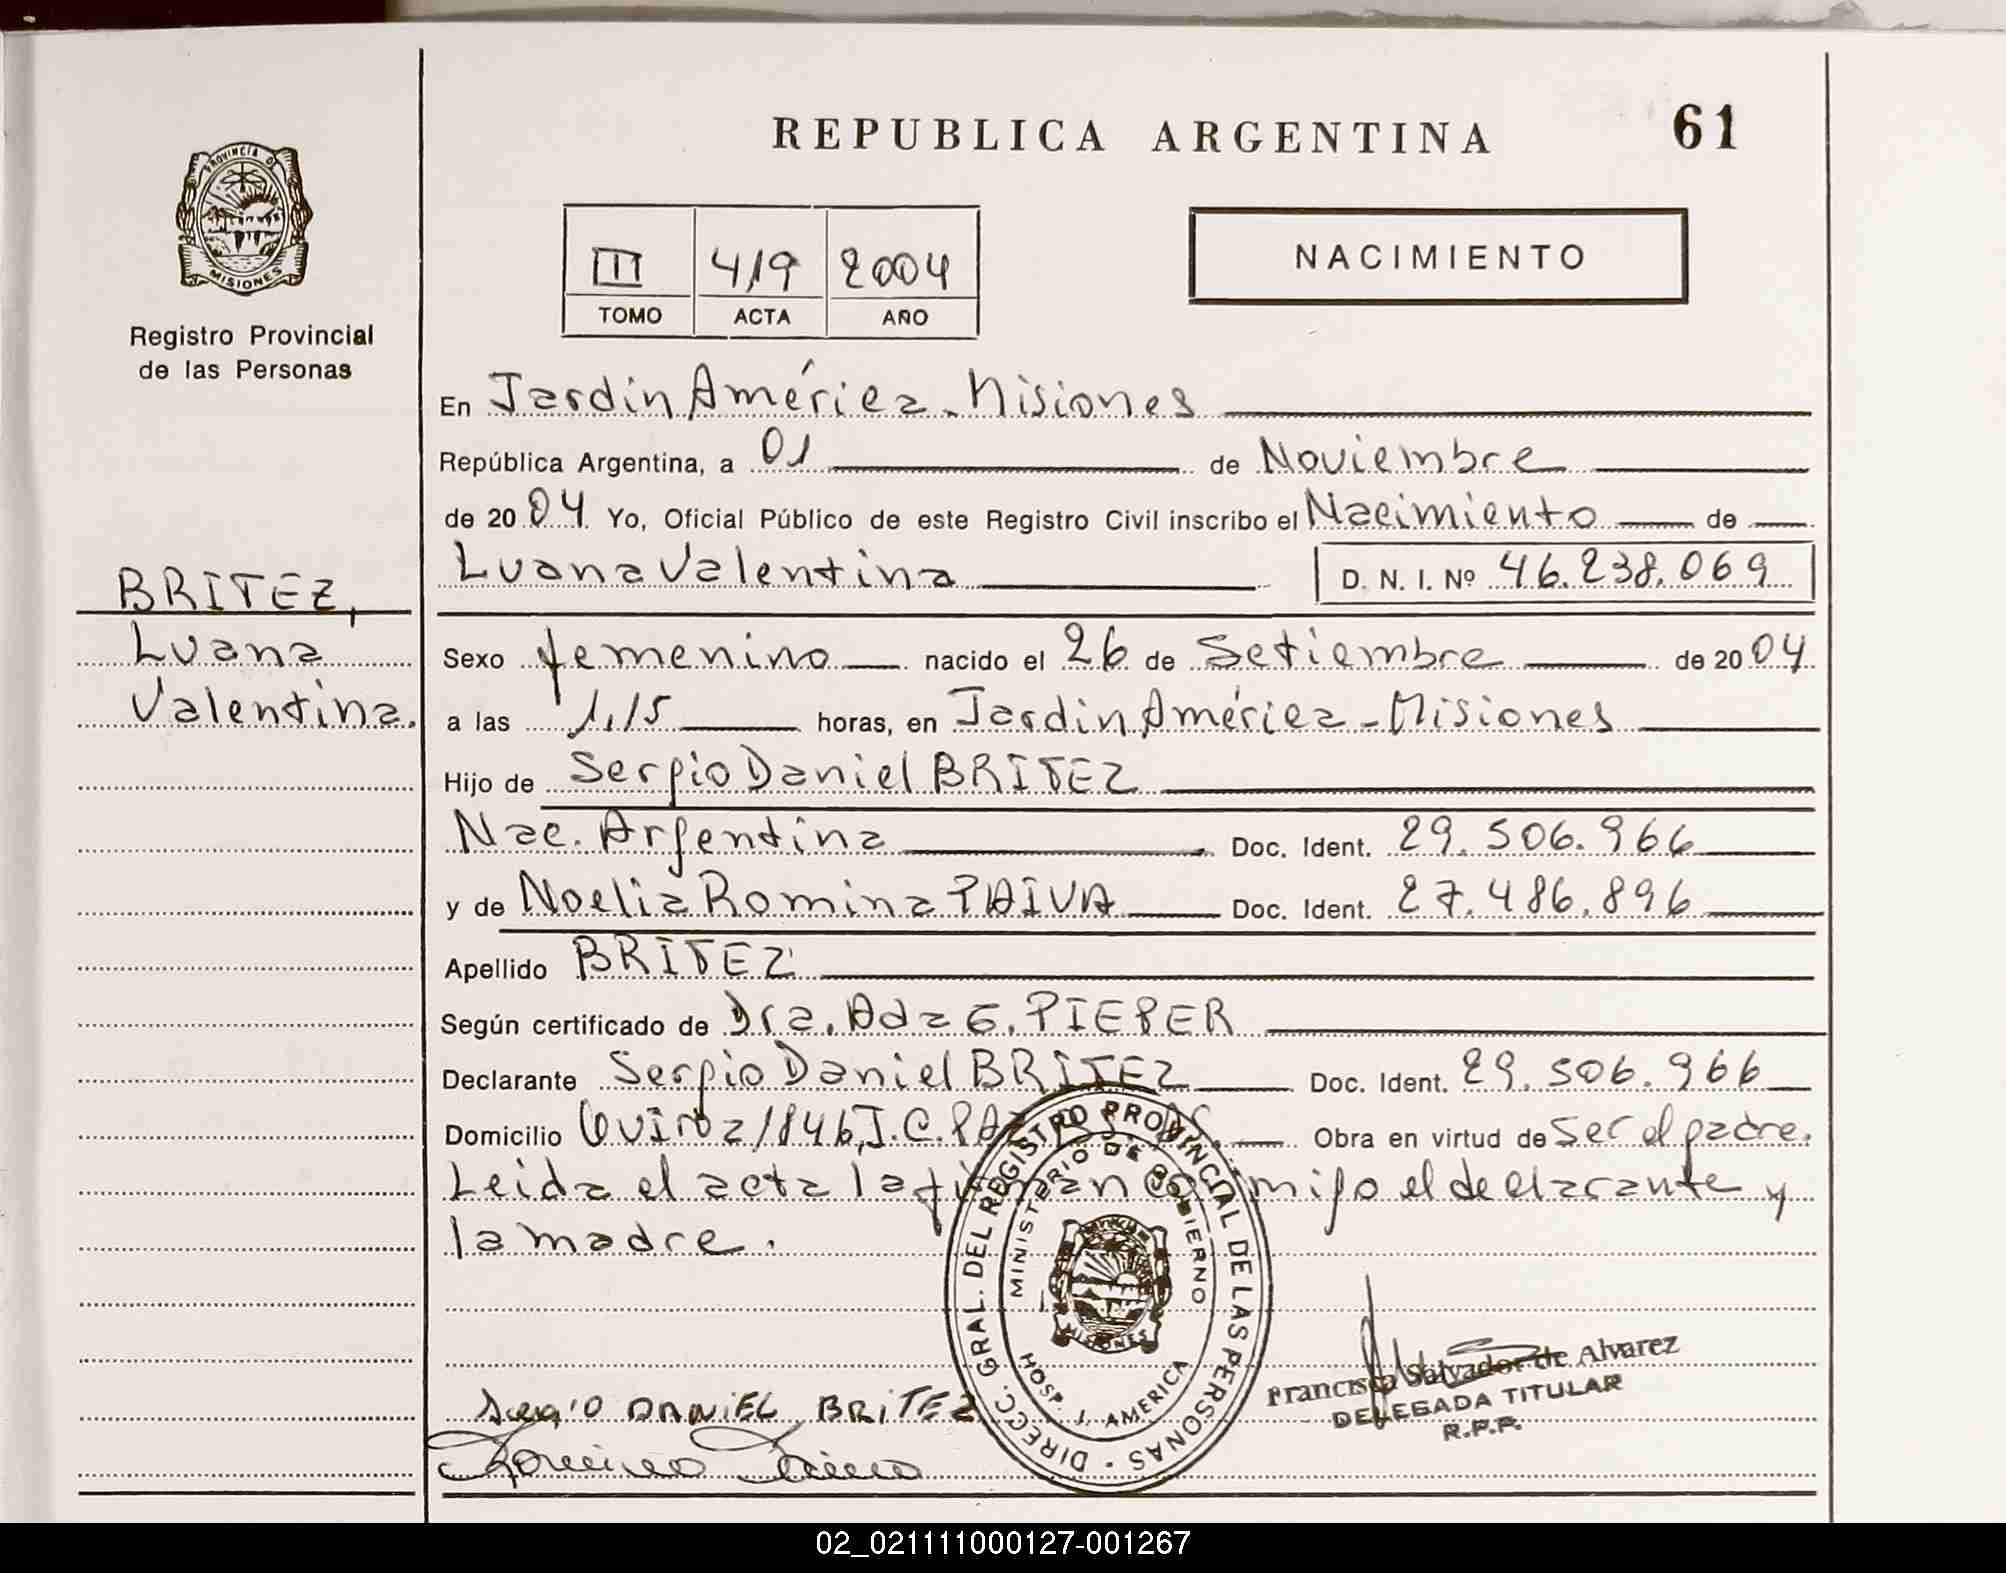 REPUBLICA ARGENTINA
61
PROVINCIA D
MISIONES
Registro Provincial
de las Personas
III 419 2004
TOMO ACTA AÑO
NACIMIENTO
En Jardín América - Misiones
República Argentina, a 01 de Noviembre
de 2004 Yo, Oficial Público de este Registro Civil inscribo el Nacimiento de
Luana Valentina D. N. I. Nº 46.238.069
BRITEZ,
Luana
Valentina.
Sexo femenino nacido el 26 de Setiembre de 2004
a las 1,15 horas, en Jardín América - Misiones
Hijo de Sergio Daniel BRITEZ
Nac. Argentina Doc. Ident. 29.506.966
y de Noelia Romina PAIVA Doc. Ident. 27.486.896
Apellido BRITEZ
Según certificado de Dra. Ada G. PIEPER
Declarante Sergio Daniel BRITEZ Doc. Ident. 29.506.966
Domicilio 1846, J.C. Obra en virtud de ser el padre.
Leida el acta la firman conmigo el declarante y
la madre.
DIRECC. GRAL. DEL REGISTRO PROVINCIAL DE LAS PERSONAS
MINISTERIO DE GOBIERNO
MISIONES
HOSP. J. AMERICA
SERGIO DANIEL BRITEZ
Francisca Salvador de Alvarez
DELEGADA TITULAR
R.P.P.
02_021111000127-001267